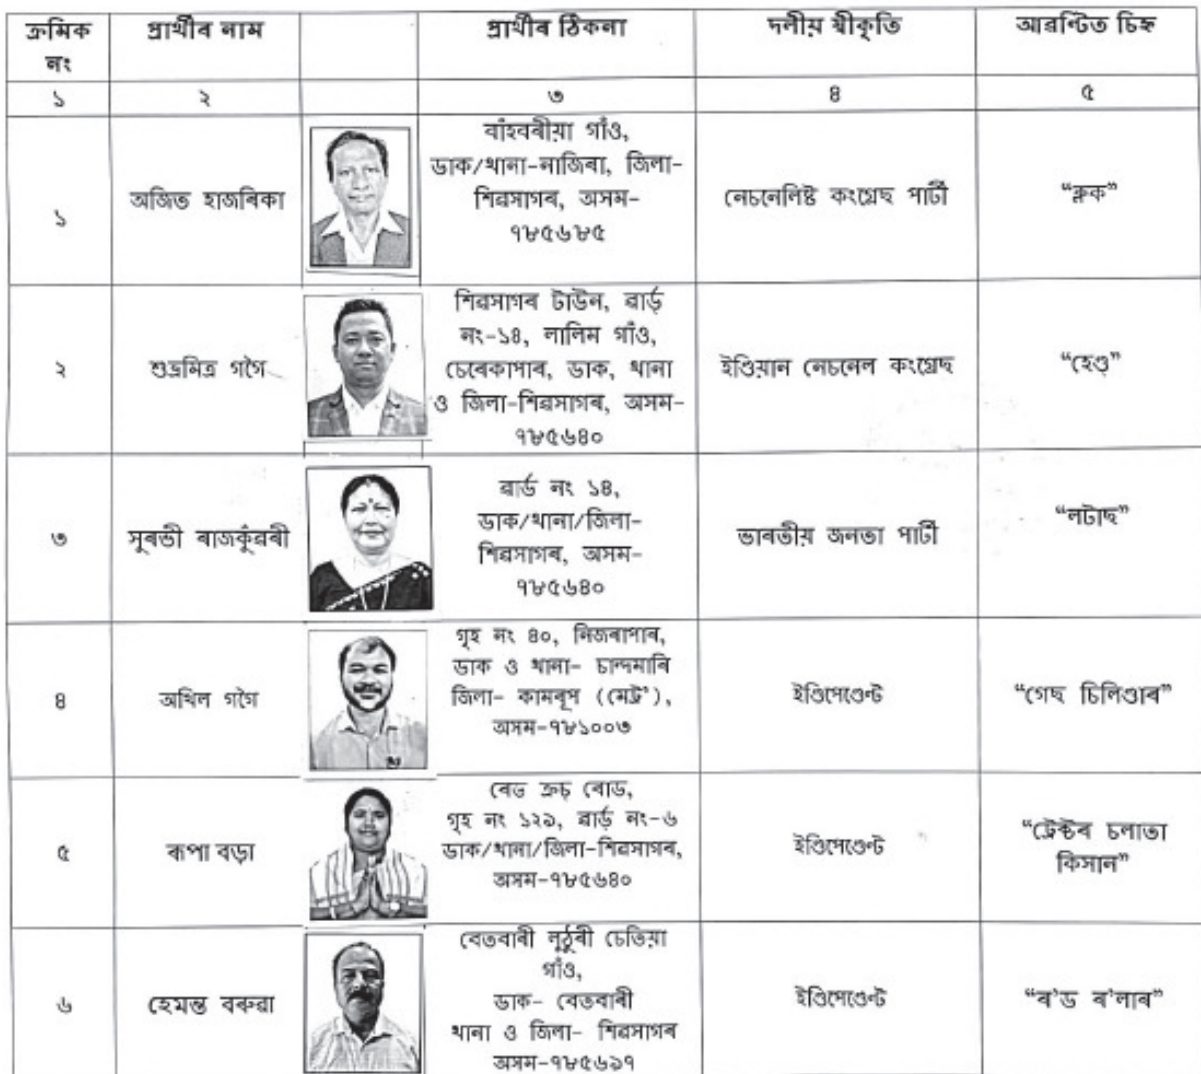 ক্ৰমিক নং প্ৰাৰ্থীৰ নাম প্ৰাৰ্থীৰ ঠিকনা দলীয় স্বীকৃতি আৱণ্টিত চিহ্ন
১ ২ ৩ ৪ ৫
১ অজিত হাজৰিকা
বাঁহবৰীয়া গাঁও,
ডাক/থানা-নাজিৰা, জিলা-
শিৱসাগৰ, অসম-
৭৮৫৬৮৫
নেচনেলিষ্ট কংগ্ৰেছ পাৰ্টী “ক্লক”
২ শুভ্ৰমিত্ৰ গগৈ
শিৱসাগৰ টাউন, ৱাৰ্ড
নং-১৪, লালিম গাঁও,
চেৰেকাপাৰ, ডাক, থানা
ও জিলা-শিৱসাগৰ, অসম-
৭৮৫৬৪০
ইণ্ডিয়ান নেচনেল কংগ্ৰেছ “হেণ্ড”
৩ সুৰভী ৰাজকুঁৱৰী
ৱাৰ্ড নং ১৪,
ডাক/থানা/জিলা-
শিৱসাগৰ, অসম-
৭৮৫৬৪০
ভাৰতীয় জনতা পাৰ্টী “লটাছ”
৪ অখিল গগৈ
গৃহ নং ৪০, নিজৰাপাৰ,
ডাক ও থানা- চান্দমাৰি
জিলা- কামৰূপ (মেট্ৰ'),
অসম-৭৮১০০৩
ইণ্ডিপেণ্ডেণ্ট “গেছ চিলিণ্ডাৰ”
৫ ৰূপা বড়া
ৰেড ক্ৰচ ৰোড,
গৃহ নং ১২৯, ৱাৰ্ড নং-৬
ডাক/থানা/জিলা-শিৱসাগৰ,
অসম-৭৮৫৬৪০
ইণ্ডিপেণ্ডেণ্ট
“ট্ৰেক্টৰ চলাতা
কিসান”
৬ হেমন্ত বৰুৱা
বেতবাৰী লুঠুৰী চেতিয়া
গাঁও,
ডাক- বেতবাৰী
থানা ও জিলা- শিৱসাগৰ
অসম-৭৮৫৬৯৭
ইণ্ডিপেণ্ডেণ্ট “ৰ'ড ৰ'লাৰ”